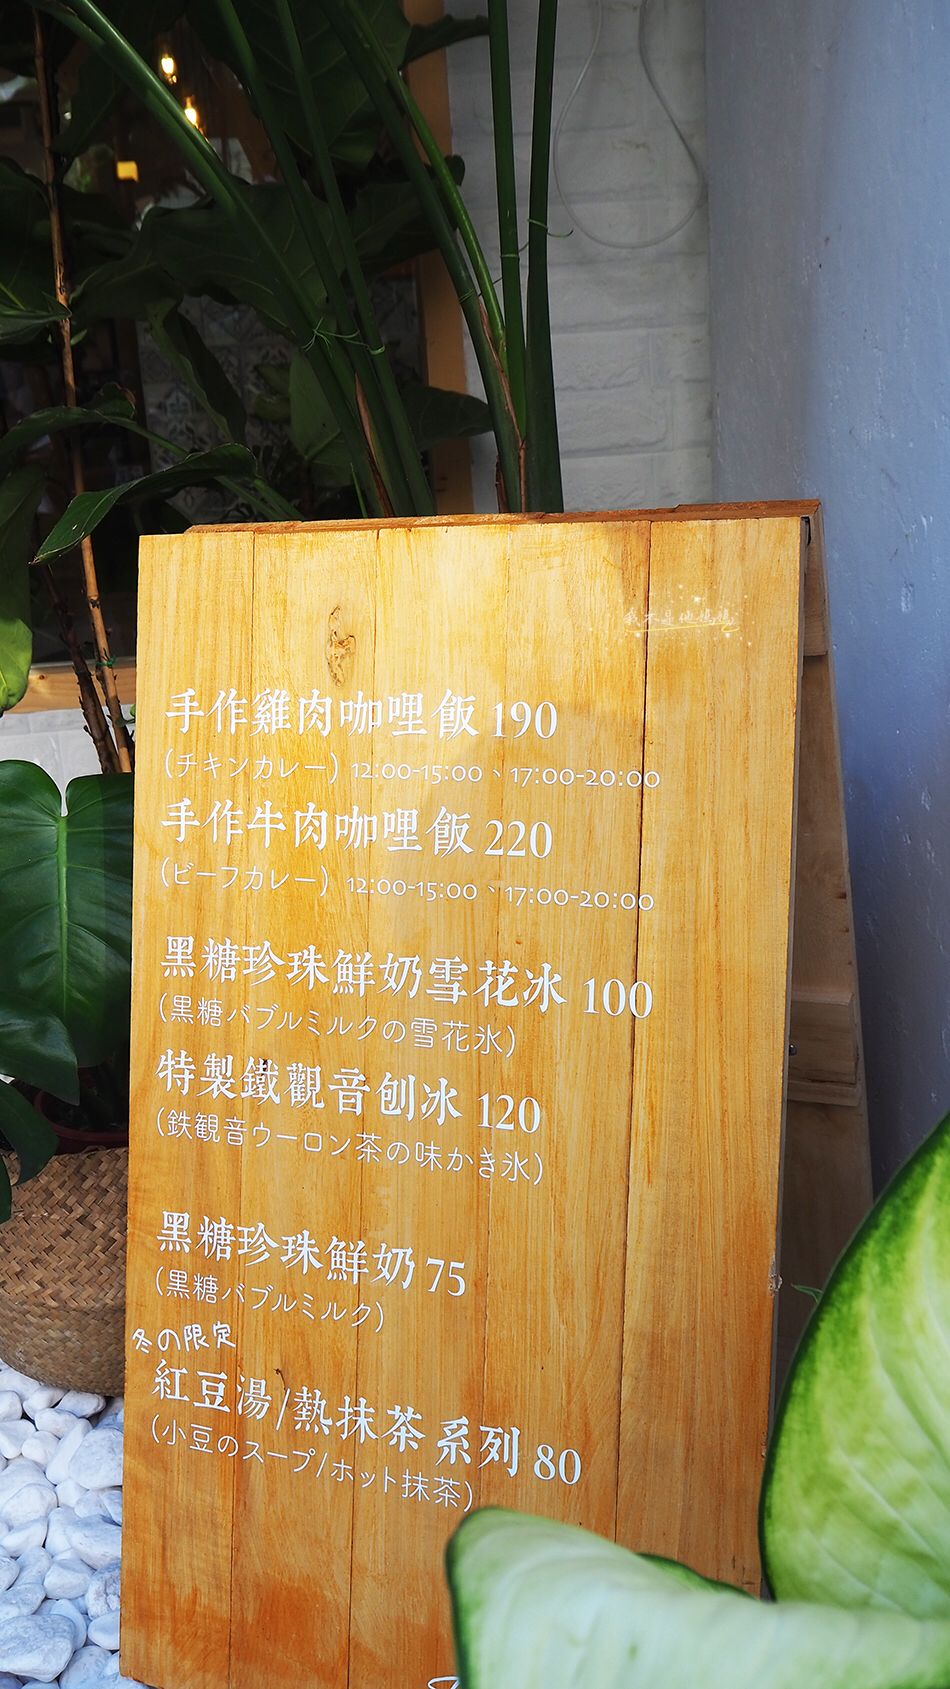 我不是他媽媽
手作雞肉咖哩飯 190
(チキンカレー) 12:00-15:00、17:00-20:00
手作牛肉咖哩飯 220
(ビーフカレー) 12:00-15:00、17:00-20:00
黑糖珍珠鮮奶雪花冰 100
(黒糖バブルミルクの雪花氷)
特製鐵觀音刨冰 120
(鉄観音ウーロン茶の味かき氷)
黑糖珍珠鮮奶 75
(黒糖バブルミルク)
冬の限定
紅豆湯/熱抹茶系列 80
(小豆のスープ/ホット抹茶)